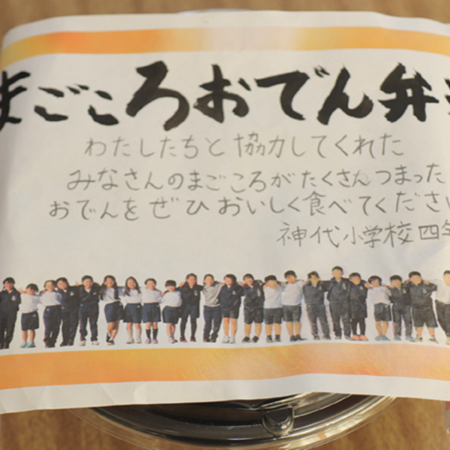 まごころおでん弁
わたしたちと協力してくれた
みなさんのまごころがたくさんつまった
おでんをぜひおいしく食べてください
神代小学校四年